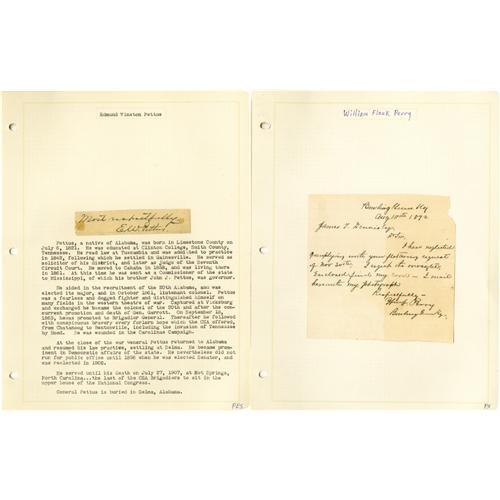 Edmund Winston Pettus
Most respectfully
E W Pettus
Pettus, a native of Alabama, was born in Limestone County on
July 6, 1821. He was educated at Clinton College, Smith County,
Tennessee. He read law at Tuscumbia and was admitted to practice
in 1842, following which he settled in Gainesville. He served as
solicitor of his district, and later as judge of the Seventh
Circuit Court. He moved to Cahaba in 1858, and was living there
in 1861. At this time he was sent as a Commissioner of the state
to Mississippi, of which his brother John J. Pettus, was governor.
He aided in the recruitment of the 20th Alabama, and was
elected its major, and in October 1861, lieutenant colonel. Pettus
was a fearless and dogged fighter and distinguished himself on
many fields in the western theatre of war. Captured at Vicksburg
and exchanged he became the colonel of the 20th and after the con-
current promotion and death of Gen. Garrott. On September 18,
1863, he was promoted to Brigadier General. Thereafter he followed with
conspicuous bravery every forlorn hope which the CSA offered,
from Chatanoog to Bentonville, including the invasion of Tennessee
by Hood. He was wounded in the Carolinas Campaign.
At the close of the war general Pettus returned to Alabama
and resumed his law practice, settling at Selma. He became prom-
inent in Democratic affairs of the state. He nevertheless did not
run for public office until 1896 when he was elected Senator, and
was reelected in 1902.
He served until his death on July 27, 1907, at Hot Springs,
North Carolina...the last of the CSA Brigadiers to sit in the
upper house of the National Congress.
General Pettus is buried in Selma, Alabama.
William Flank Perry
Bowling Green Ky
Aug 10th 1892
James T. Dennis Esq
Dr Sir,
I have neglected
complying with your flattering request
of Nov 20th. I regret the oversight,
Enclosed find my
herewith my photograph
Respectfully
Perry
Bowling Green Ky.